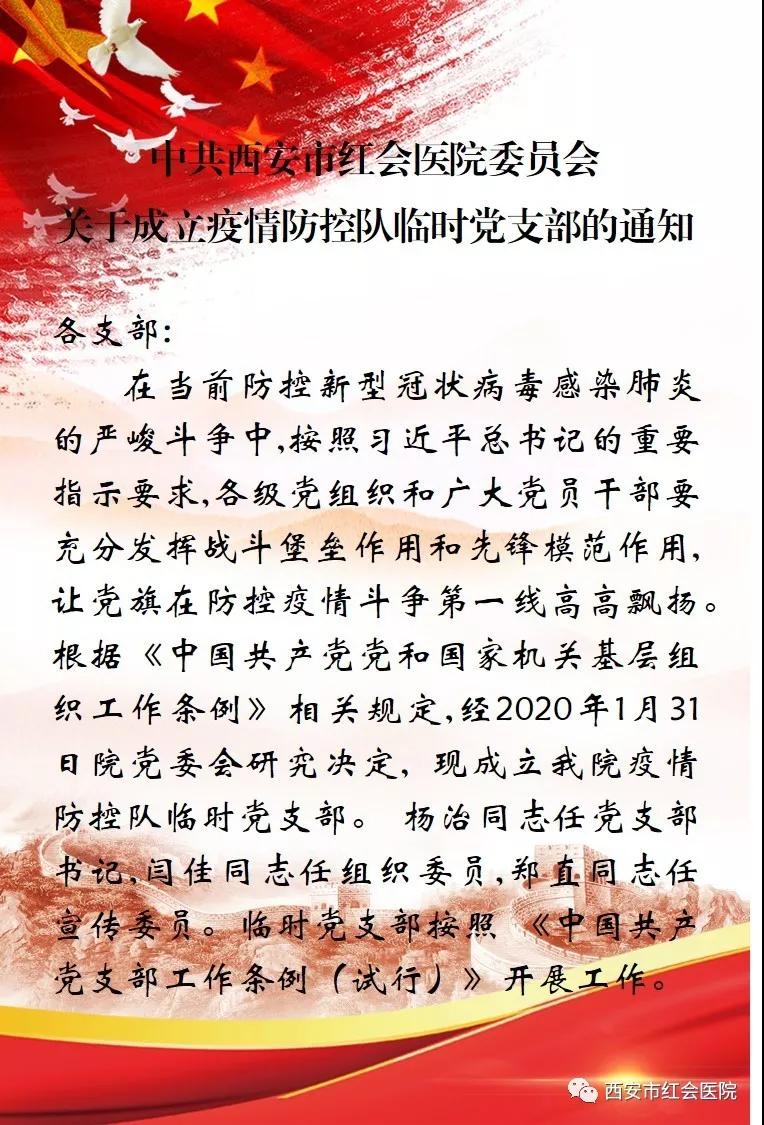 中共西安市红会医院委员会
关于成立疫情防控队临时党支部的通知
各支部:
在当前防控新型冠状病毒感染肺炎
的严峻斗争中,按照习近平总书记的重要
指示要求,各级党组织和广大党员干部要
充分发挥战斗堡垒作用和先锋模范作用,
让党旗在防控疫情斗争第一线高高飘扬。
根据《中国共产党党和国家机关基层组
织工作条例》相关规定,经2020年1月31
日院党委会研究决定，现成立我院疫情
防控队临时党支部。 杨治同志任党支部
书记,闫佳同志任组织委员,郑直同志任
宣传委员。临时党支部按照 《中国共产
党支部工作条例（试行）》开展工作。
西安市红会医院